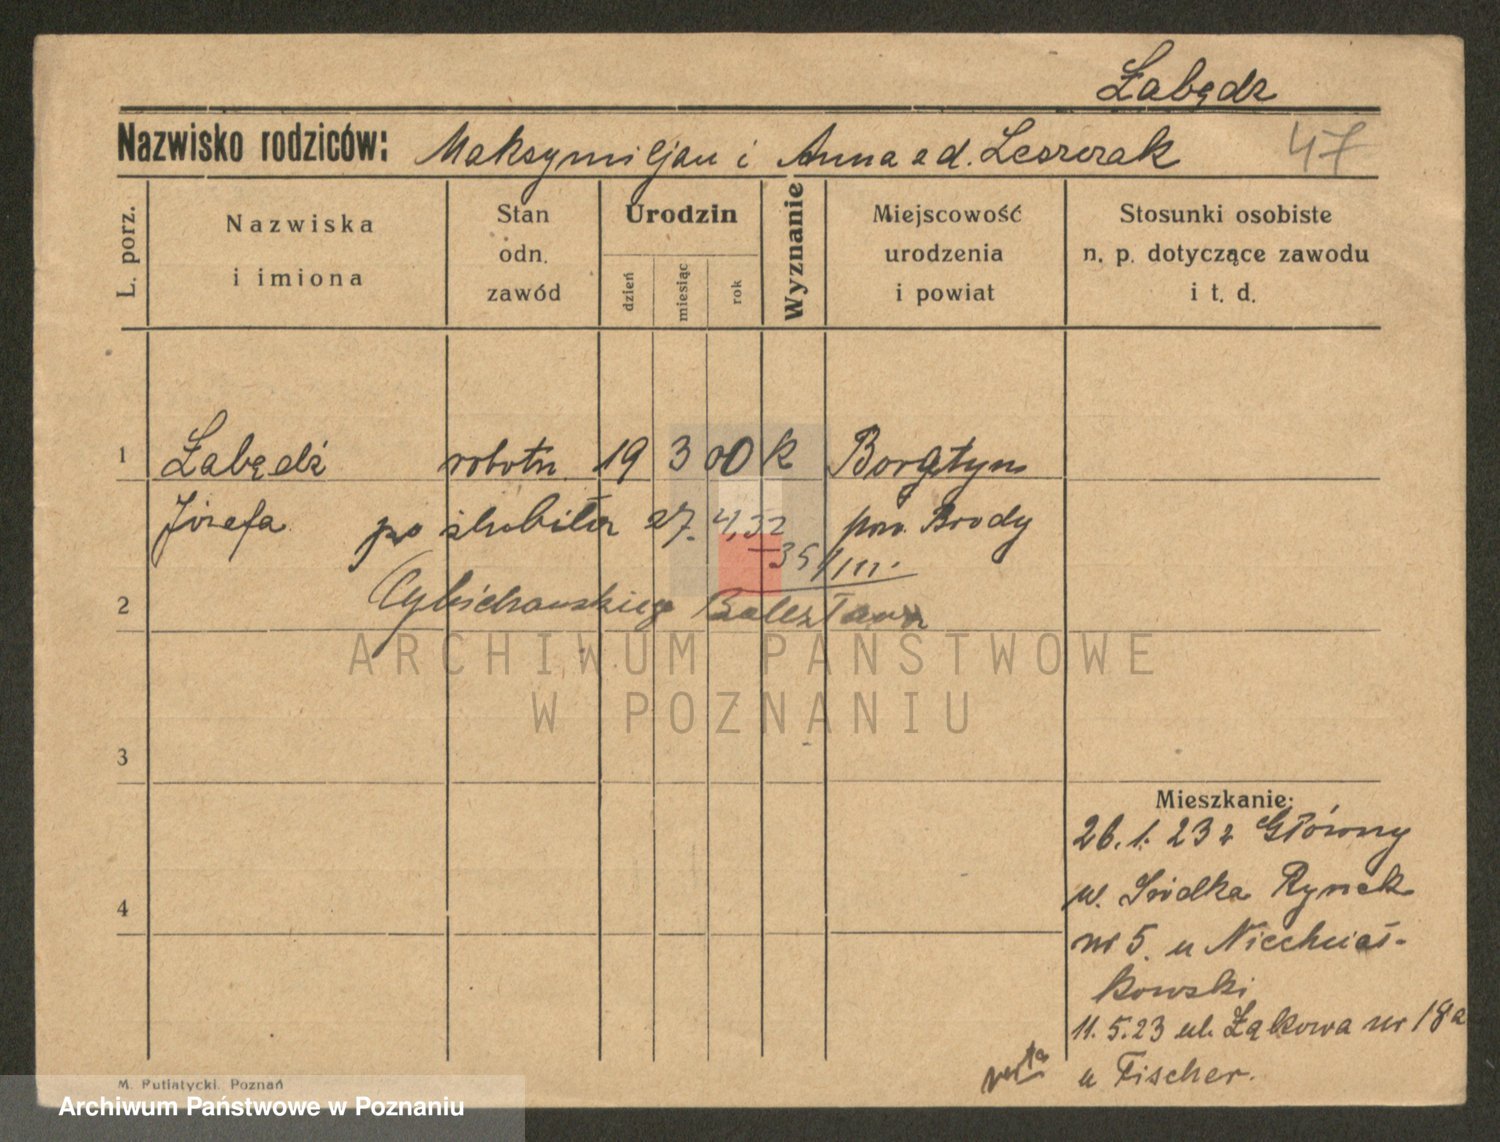 Łabędź
Nazwisko rodziców: Maksymiljan i Anna z d. Leszczak 47
L. porz.
Nazwiska
i imiona
Stan
odn.
zawód
Urodzin
dzień
miesiąc
rok
Wyznanie
Miejscowość
urodzenia
i powiat
Stosunki osobiste
n. p. dotyczące zawodu
i t. d.
1 Łabędź robotn. 19 3 00 k Boratyn
Józefa po ślubiła 27. 4, 32 pow. Brody
35/III.
2 Cybichowskiego Bolesława
ARCHIWUM PAŃSTWOWE
W POZNANIU
3
Mieszkanie:
26. 1. 23 z Główny
w. Śródka Rynek
4
nr 5. u Niechciał-
kowski
11. 5. 23 ul. Łąkowa nr 18a
verte u Fischer.
M. Putiatycki, Poznań
Archiwum Państwowe w Poznaniu